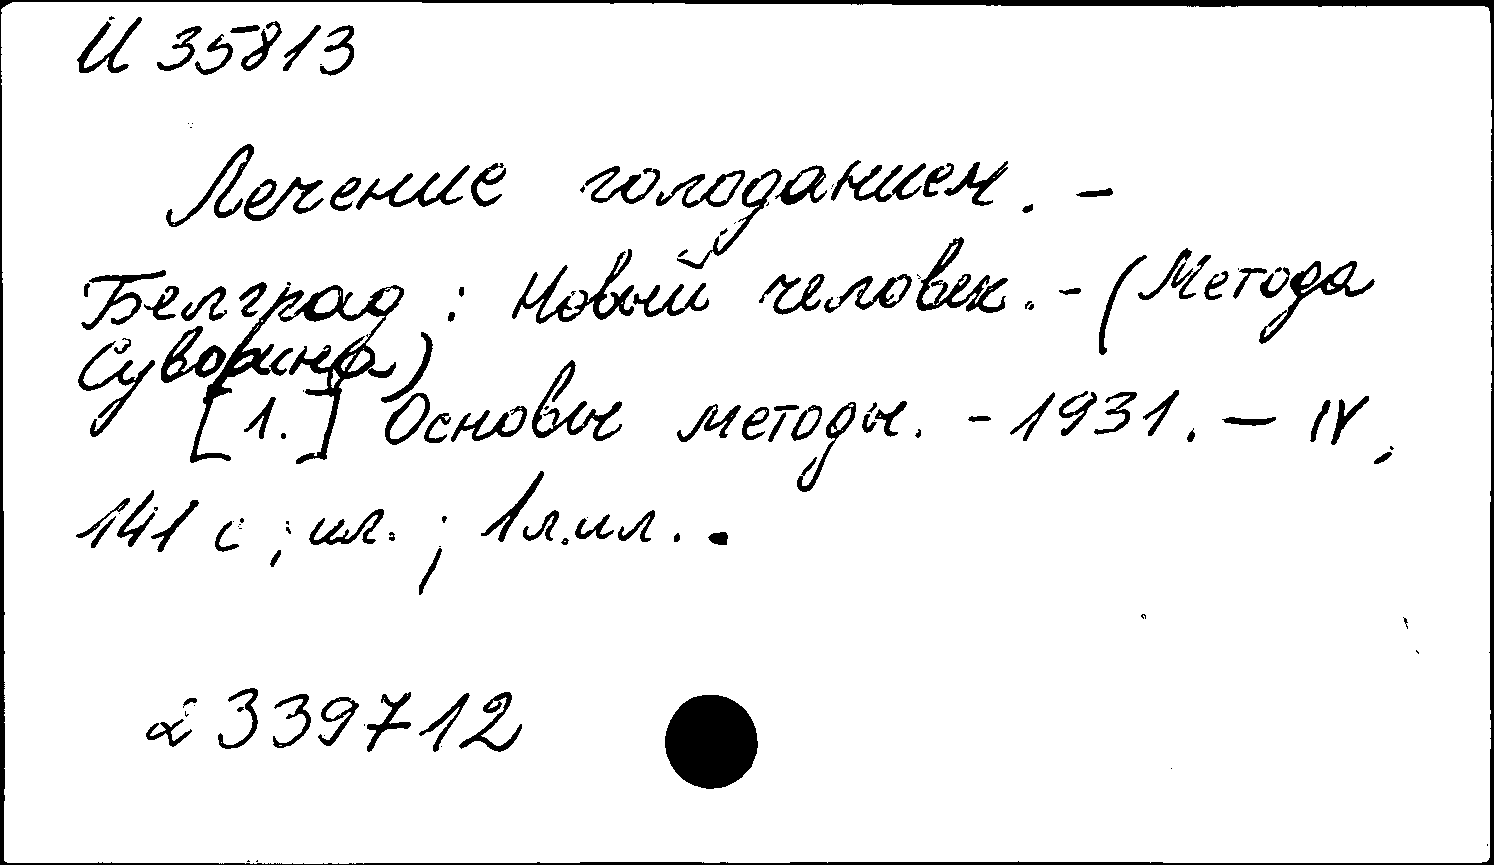 И 35813
Лечение голоданием. –
Белград : Новый человек. – (Метода
Суворина)
[1.] Основы методы. – 1931. – IV,
141 с ; ил. ; 1 л. ил. .
2339712